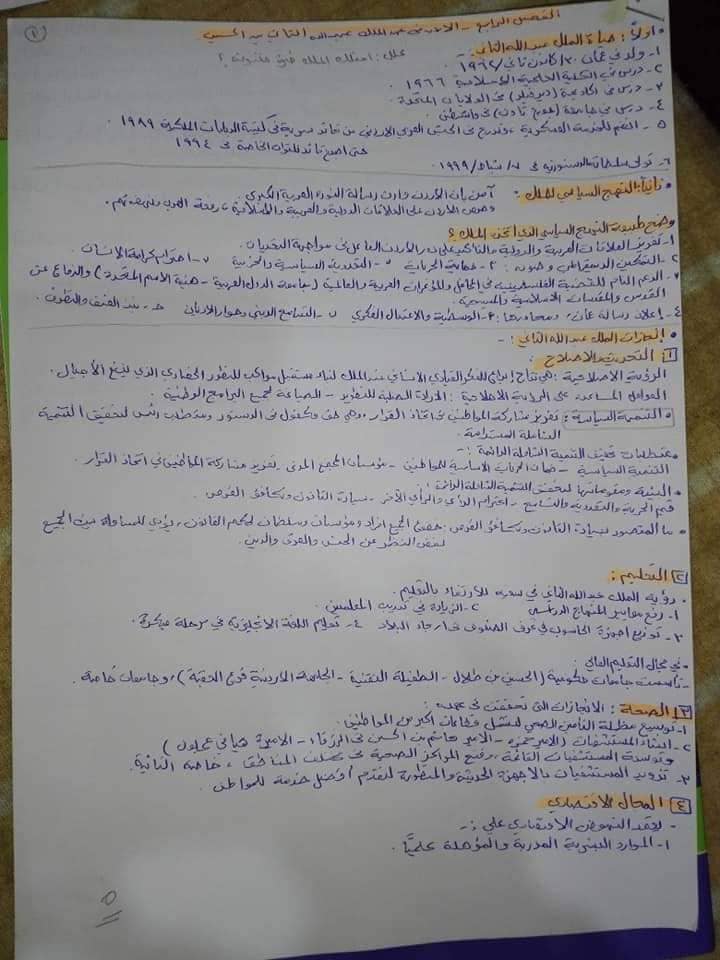 الفصل الرابع - الأردن في عهد الملك عبدالله الثاني بن الحسين
١
أولاً: حياة الملك عبدالله الثاني: -
علل: امتلك الملك
١- ولد في عمان ٣٠/كانون ثاني/١٩٦٢
٢- درس في الكلية العلمية الإسلامية ١٩٦٦
٣- درس في أكاديمية (ديرفيلد) في الولايات المتحدة
٤- درس في جامعة (جورج تاون) في واشنطن
٥- انضم للخدمة العسكرية، وتدرج في الجيش العربي الأردني من قائد سرية في كتيبة الدبابات الملكية ١٩٨٩
حتى أصبح قائد للقوات الخاصة في ١٩٩٤
٦- تولى سلطاته الدستورية في ٧/شباط/١٩٩٩
ثانياً: النهج السياسي للملك: آمن بأن الأردن وارث رسالة الثورة العربية الكبرى
وحرص الأردن على العلاقات الدولية والعربية والإسلامية، وحدة العرب
وضح طبيعة النهج السياسي الذي اتخذه الملك؟
١- تعزيز العلاقات العربية والدولية والتأكيد على دور الأردن الفاعل في مواجهة التحديات
٢- التمكين الديمقراطي وصونه: حماية الحريات التعددية السياسية والحزبية احترام كرامة الإنسان
٣- الدعم التام للقضية الفلسطينية في المحافل والمؤتمرات العربية والعالمية (جامعة الدول العربية - هيئة الأمم المتحدة) والدفاع عن
القدس والمقدسات الإسلامية والمسيحية
٤- إعلان رسالة عمان، ومحاورها: الوسطية والاعتدال الفكري التسامح الديني وحوار الأديان نبذ العنف والتطرف
إنجازات الملك عبدالله الثاني: -
١ التحديث والإصلاح:
الرؤية الإصلاحية: هي نتاج الفكر القيادي الإنساني عند الملك لبناء مستقبل مواكب للتطور الحضاري الذي ينفع الأجيال.
العوامل المساعدة على الرؤية الإصلاحية: الإرادة الصلبة للتطوير - الصياغة لجميع البرامج الوطنية.
التنمية السياسية: تعزيز مشاركة المواطنين في اتخاذ القرار، وهي حق مكفول في الدستور ومتطلب رئيس لتحقيق التنمية
الشاملة المستدامة.
متطلبات تحقيق التنمية الشاملة الدائمة: -
التنمية السياسية - ضمان الحريات الأساسية للمواطنين - مؤسسات المجتمع المدني، تعزيز مشاركة المواطنين في اتخاذ القرار.
البيئة ومقوماتها لتحقيق التنمية الشاملة الدائمة
قيم الحرية والتعددية والتسامح - احترام الرأي والرأي الآخر - سيادة القانون وتكافؤ الفرص.
ما المقصود بسيادة القانون وتكافؤ الفرص: خضوع الجميع أفراد ومؤسسات وسلطات لحكم القانون، يؤدي للمساواة بين الجميع
بغض النظر عن الجنس والعرق والدين.
٢ التعليم:
رؤية الملك عبدالله الثاني في سعيه للارتقاء بالتعليم.
١- رفع معايير المنهاج الدراسي ٢- الزيادة في تدريب المعلمين
٣- توزيع أجهزة الحاسوب في غرف الصفوف في أرجاء البلاد ٤- تعليم اللغة الإنجليزية في مرحلة مبكرة.
في مجال التعليم العالي:
- تأسست جامعات حكومية (الحسين بن طلال - الطفيلة التقنية - الجامعة الأردنية فرع العقبة)، وجامعات خاصة.
٣ الصحة: الإنجازات التي تحققت في عهده:
١- توسيع مظلة التأمين الصحي لتشمل قطاعات أكبر من المواطنين
٢- إنشاء المستشفيات (الأمير حمزة - الأمير هاشم بن الحسين في الزرقاء - الأميرة هيا في عجلون)
وتوسعة المستشفيات القائمة، ورفع المراكز الصحية في مختلف المناطق، خاصة النائية.
٣- تزويد المستشفيات بالأجهزة الحديثة والمتطورة لتقديم أفضل خدمة للمواطن.
٤ المجال الاقتصادي
- يعتمد النهوض الاقتصادي على: -
١- الموارد البشرية المدربة والمؤهلة علمياً.
٥